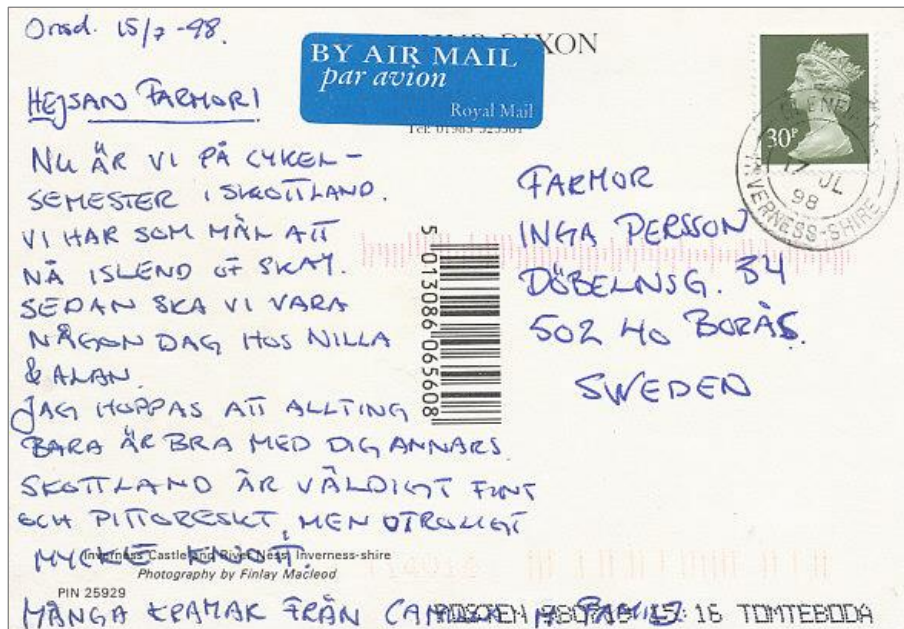 Onsd. 15/7 -98.
HEJSAN FARMOR!
NU ÄR VI PÅ CYKEL-
SEMESTER I SKOTTLAND.
VI HAR SOM MÅL ATT
NÅ ISLEND OF SKAY.
SEDAN SKA VI VARA
NÅGON DAG HOS NILLA
& ALAN.
JAG HOPPAS ATT ALLTING
BARA ÄR BRA MED DIG ANNARS.
SKOTTLAND ÄR VÄLDIGT FINT
OCH PITTORESKT, MEN OTROLIGT
MYCKE KNOTT.
MÅNGA KRAMAR FRÅN
DIXON
BY AIR MAIL
par avion
Royal Mail
Tel: 01983
30P
17 JL
98
INVERNESS-SHIRE
FARMOR
INGA PERSSON
DÖBELNSG. 34
502 40 BORÅS.
SWEDEN
5 013086 065608
Inverness Castle and River Ness, Inverness-shire
Photography by Finlay Macleod
PIN 25929
15 16 TOMTEBODA